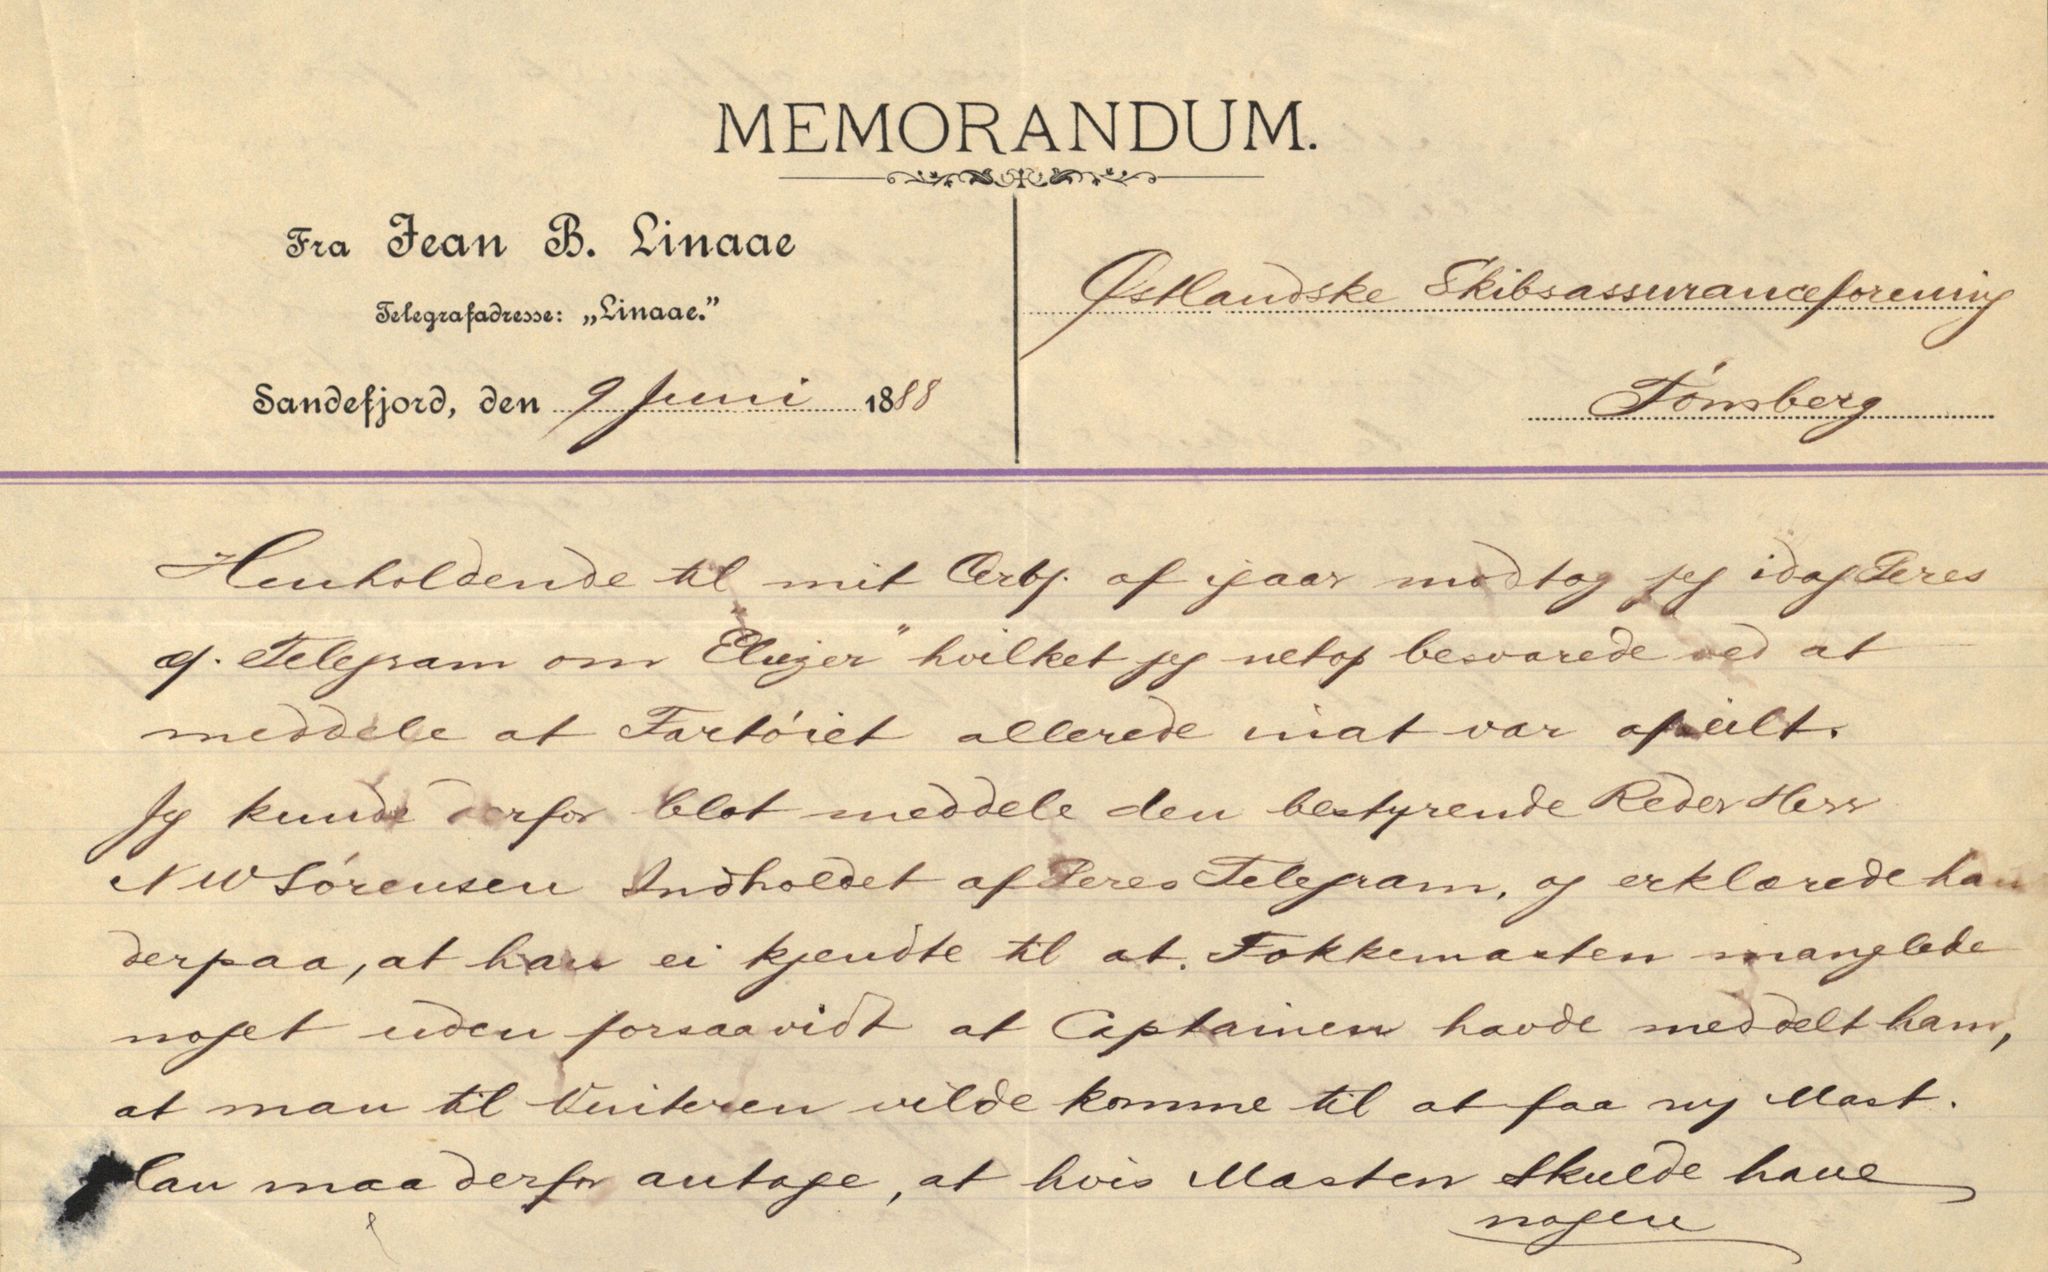 MEMORANDUM.
Fra Jean B. Linaae
Telegrafadresse: „Linaae.”
Sandefjord, den 9 Juni 1888
Østlandske Skibsassuranceforening
Tønsberg
Henholdende til mit af igaar modtog jeg idag Deres
Telegram om "Eliezer" hvilket jeg netop besvarede ved at
meddele at Fartøiet allerede inat var afseilt.
Jeg kunde derfor blot meddele den bestyrende Reder Herr
N W Sørensen Indholdet af Deres Telegram, og erklærede han
derpaa, at han ei kjendte til at Fokkemasten manglede
noget uden forsaavidt at Captainen havde meddelt ham,
at man til Vinteren vilde komme til at faa ny Mast.
Han maa derfor antage, at hvis Masten skulde have
nogen